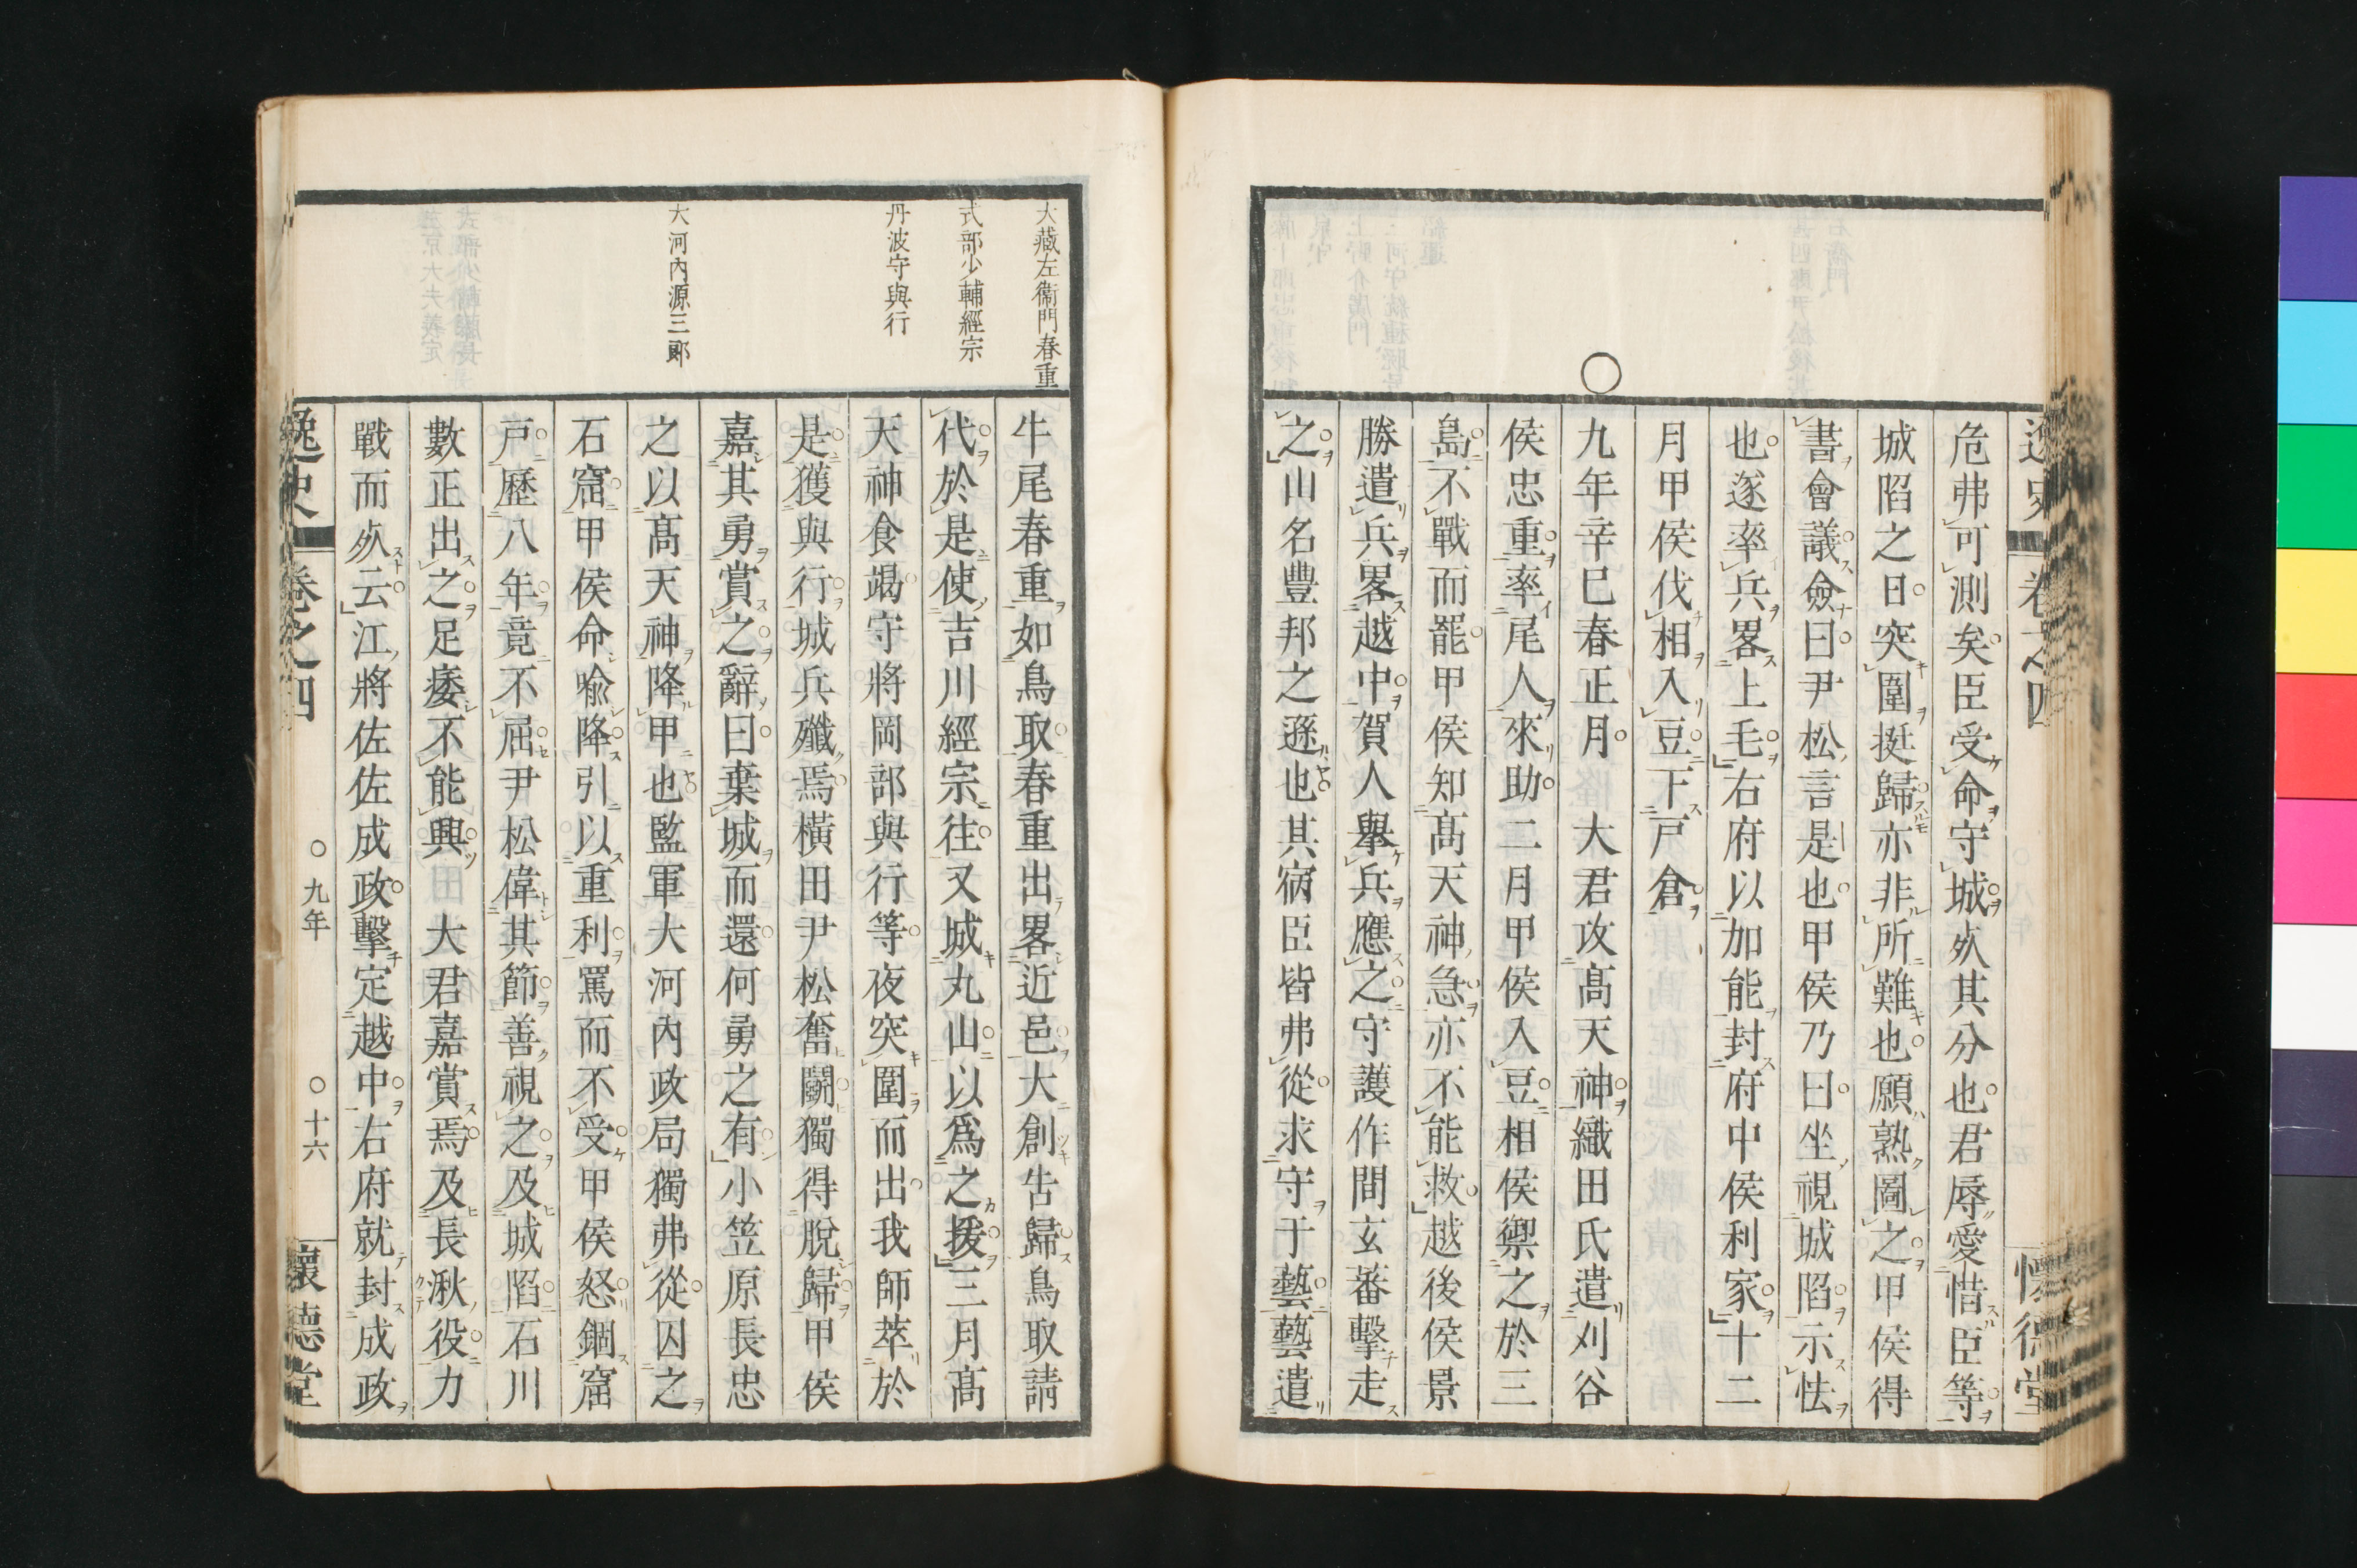 危弗可測矣臣受命守城㱙其分也君辱愛惜臣等
城陷之日突圍挺歸亦非所難也願熟圖之甲侯得
書會議僉曰尹松言是也甲侯乃曰坐視城陷示怯
也遂率兵畧上毛右府以加能封府中侯利家十二
月甲侯伐相入豆下戸倉
○
九年辛巳春正月大君攻髙天神織田氏遣刈谷
侯忠重率尾人來助二月甲侯入豆相侯禦之於三
島不戰而罷甲侯知髙天神急亦不能救越後侯景
勝遣兵畧越中賀人擧兵應之守護作間玄蕃擊走
之山名豐邦之遜也其病臣皆弗從求守于藝藝遣
大藏左衞門春重
式部少輔經宗
丹波守與行
大河內源三郎
牛尾春重如鳥取春重出畧近邑大創告歸鳥取請
代於是使吉川經宗往又城丸山以爲之援三月髙
天神食竭守將岡部與行等夜突圍而出我師萃於
是獲與行城兵殲焉橫田尹松奮鬭獨得脫歸甲侯
嘉其勇賞之辭曰棄城而還何勇之有小笠原長忠
之以髙天神降甲也監軍大河內政局獨弗從囚之
石窟甲侯命喩降引以重利罵而不受甲侯怒錮窟
戸歷八年竟不屈尹松偉其節善視之及城陷石川
數正出之足痿不能興大君嘉賞焉及長湫役力
戰而㱙云江將佐佐成政擊定越中右府就封成政
逸史 卷之四 ○九年 ○十六 懷德堂